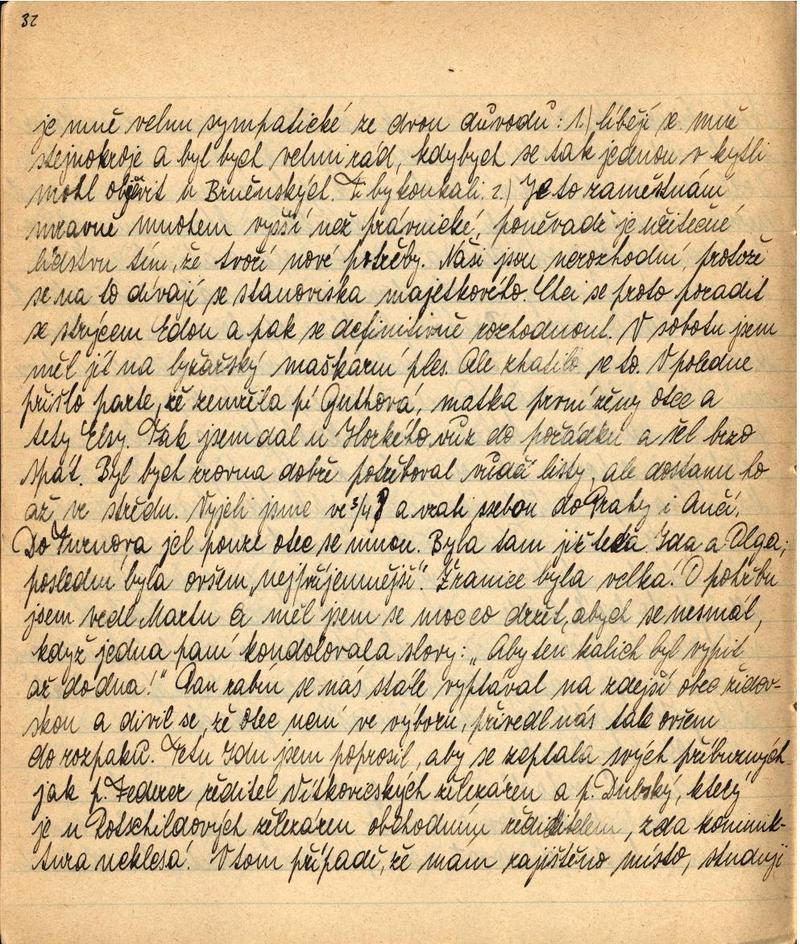 32
je mně velmi sympatické ze dvou důvodů: 1.) líbějí se mně
stejnokroje a byl bych velmi rád, kdybych se tak jednou v kytli
mohl objevit u Brněnských. Ti by koukali. 2.) Je to zaměstnání
mravně mnohem vyšší než právnické, poněvadž je užitečné
lidstvu tím, že tvoří nové potřeby. Naši jsou nerozhodní, protože
se na to dívají se stanoviska majetkového. Chci se proto poradit
se strýcem Edou a pak se definitivně rozhodnout. V sobotu jsem
měl jít na lyžařský maškarní ples. Ale zhatilo se to. V poledne
přišlo parte, že zemřela pí Guthová, matka první ženy otce a
tety Elsy. Tak jsem dal u Horkého vůz do pořádku a šel brzo
spát. Byl bych zrovna dobře potřeboval vůdčí listy, ale dostanu ho
až ve středu. Vyjeli jsme ve 3/4 8 a vzali ssebou do Prahy i Anči.
Do Turnova jel pouze otec se mnou. Byla tam již teta Ida a Olga;
poslední byla ovšem „nejpříjemnější“. Žranice byla velká! O pohřbu
jsem vedl Martu a měl jsem se moc co držet, abych se nesmál,
když jedna paní kondolovala slovy: „Aby ten kalich byl vypit
až do dna!“ Pan rabín se nás stále vyptával na zdejší obec židov-
skou a divil se, že otec není ve výboru, přivedl nás tak ovšem
do rozpaků. Tetu Idu jsem poprosil, aby se zeptala svých příbuzných
jak p. Federer ředitel Vítkovických železáren a p. Dubský, který
je u Rotschildových železáren obchodním ředitelem, zda konjunk-
tura neklesá. V tom případě, že mám zajištěno místo, studuji